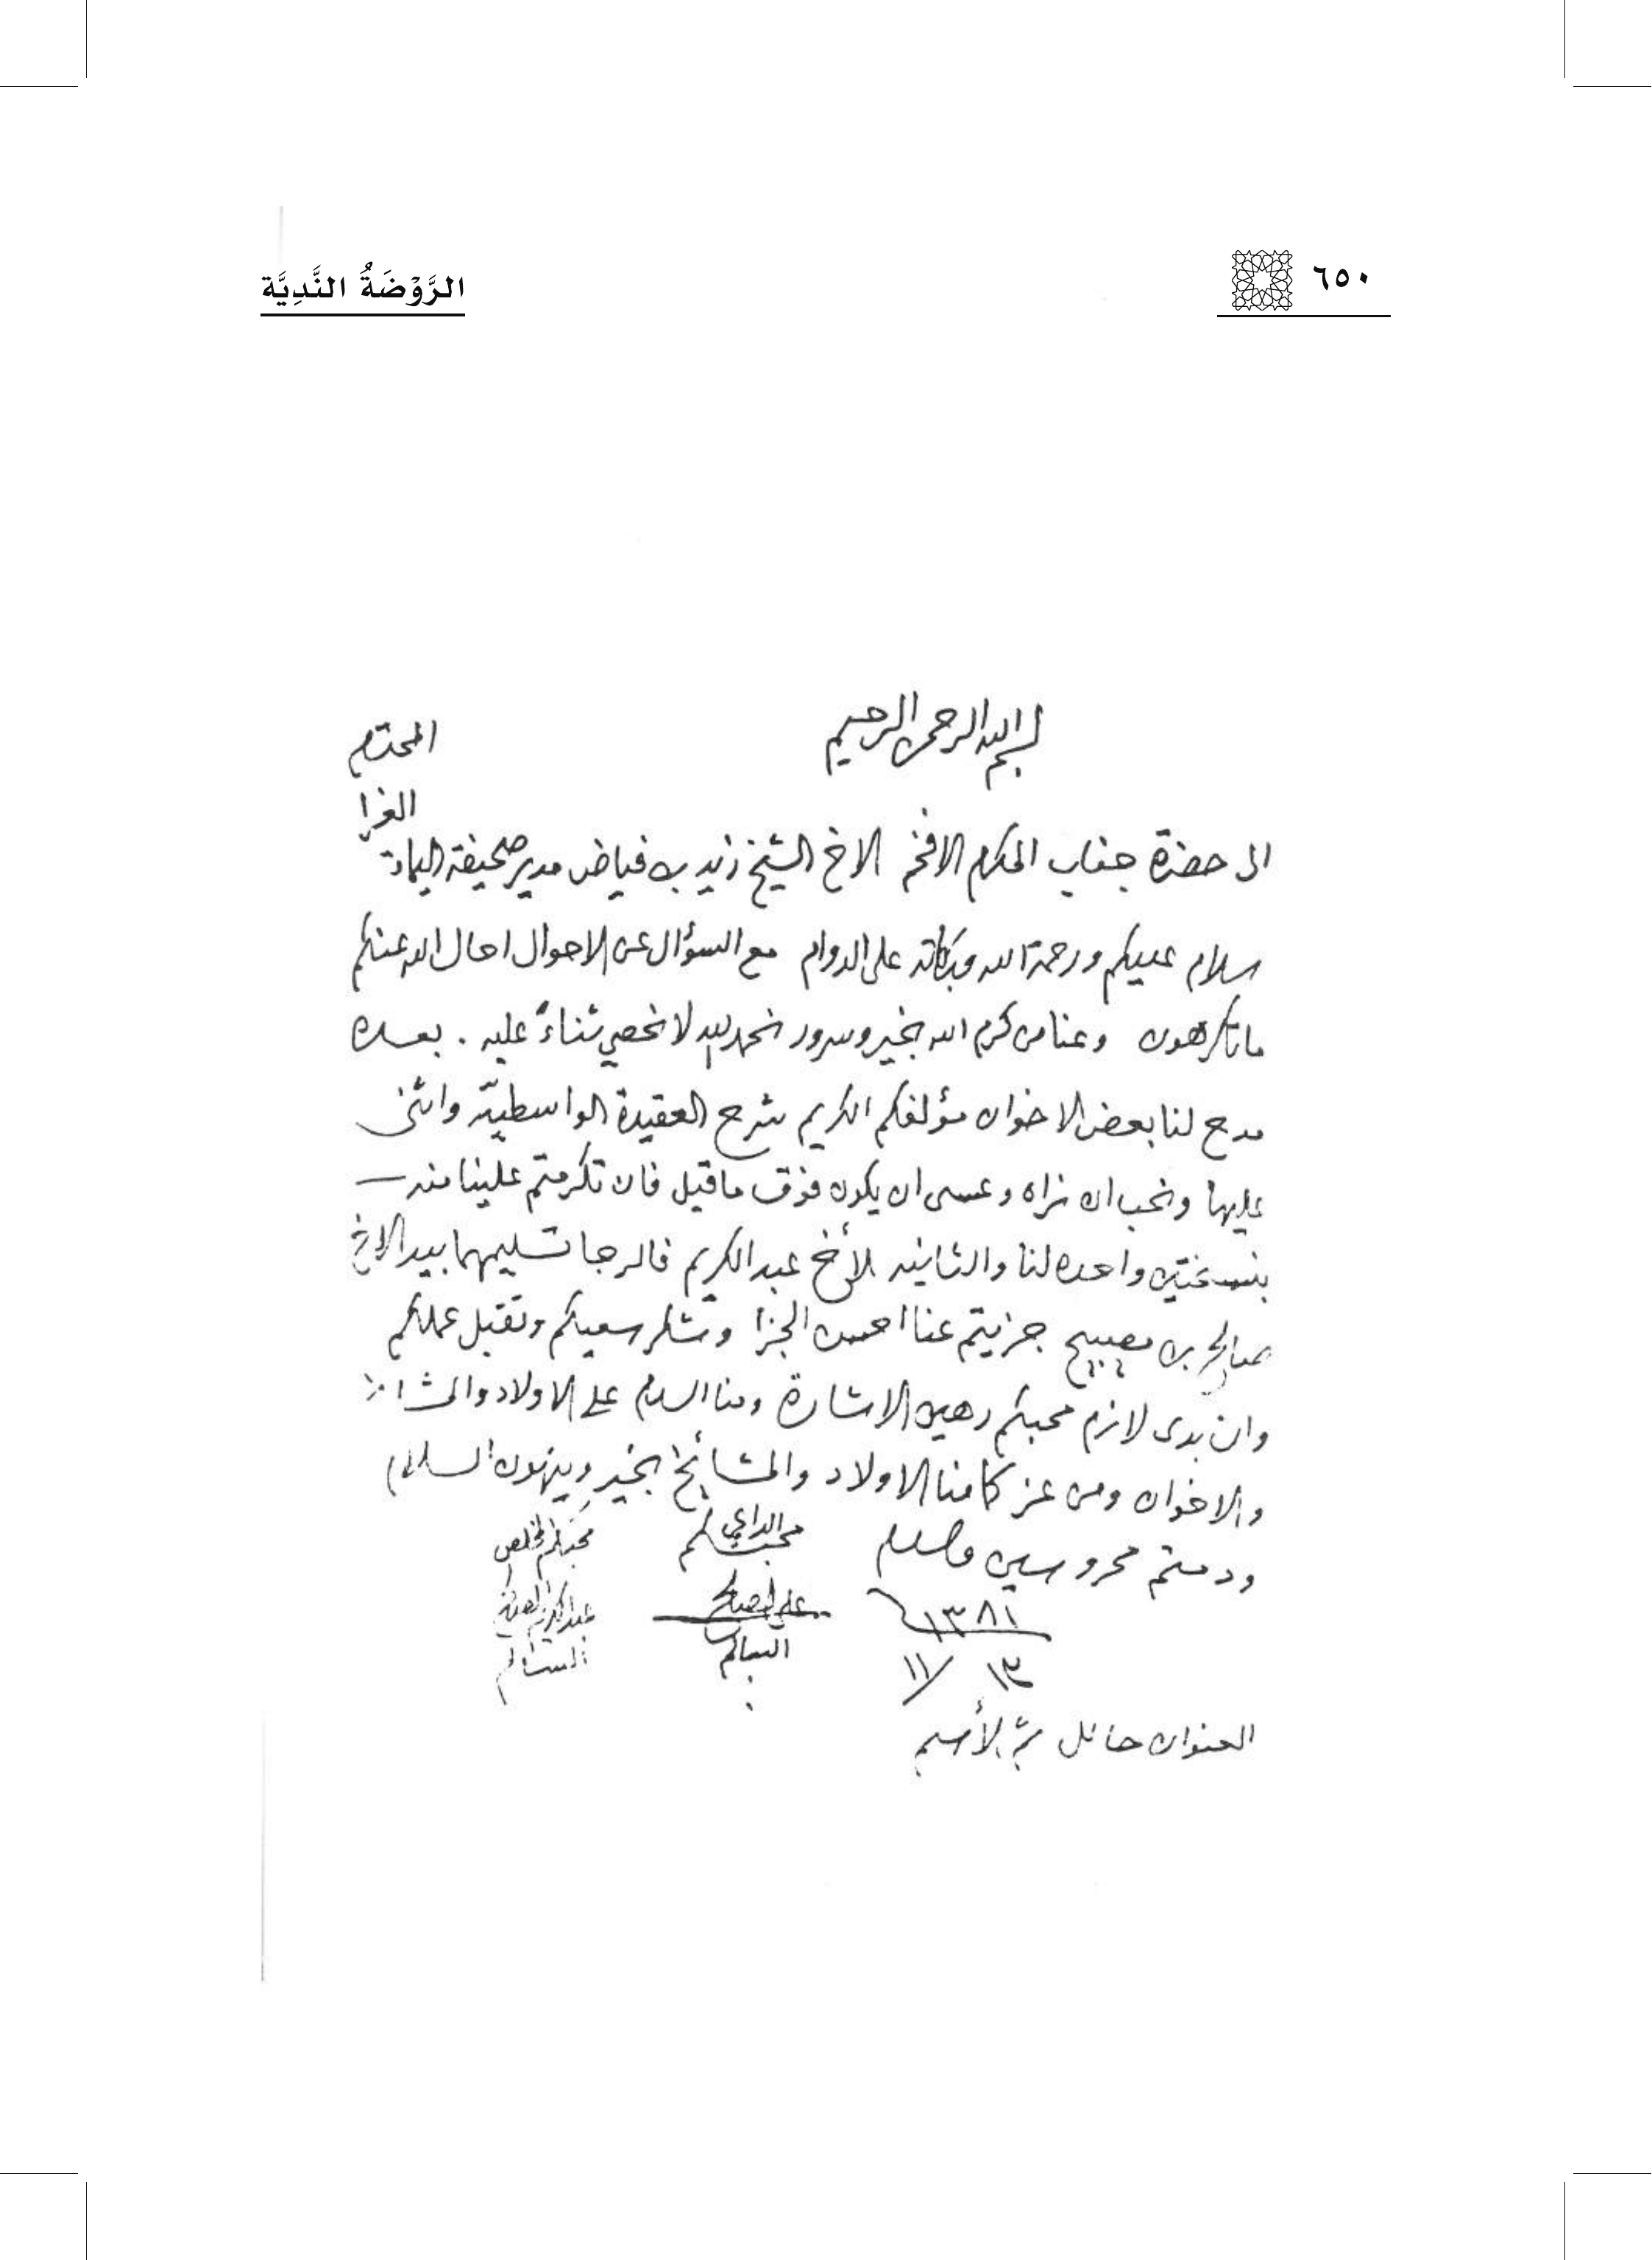 ٦٥٠
الرَّوْضَةُ النَّدِيَّة
بسم الله الرحمن الرحيم
المحترم
الغرا
الى حضرة جناب المكرم الافخم الاخ الشيخ زيد بن فياض مدير صحيفة اليمامة
سلام عليكم ورحمة الله وبركاته على الدوام مع السؤال عن الاحوال احال الله عنكم
ماتكرهون وعنا من كرم الله بخير وسرور نحمد لله لا نحصي ثناءً عليه . بعده
مدح لنا بعض الاخوان مؤلفكم الكريم شرح العقيدة الواسطيّه واثنى
عليها ونحب ان نراه وعسى ان يكون فوق ما قيل فان تكرمتم علينا منه
بنسختين واحده لنا والثانيه للأخ عبد الكريم فالرجا تسليمهما بيد الاخ
صالح بن مصيبيح جزيتم عنا احسن الجزا وشكر سعيكم وتقبل عملكم
وان بدى لازم محبكم رهين الاشارة ومنا السلام على الاولاد والمشائخ
والاخوان ومن عز كما منا الاولاد والمشائخ بخير وينهون السلام
ودمتم محروسين والسلام
محبكم الداعي
علي الصالح
السالم
محبكم المخلص
عبدالكريم الصالح
السالم
١٣٨١
١٣ / ١١
العنوان حائل